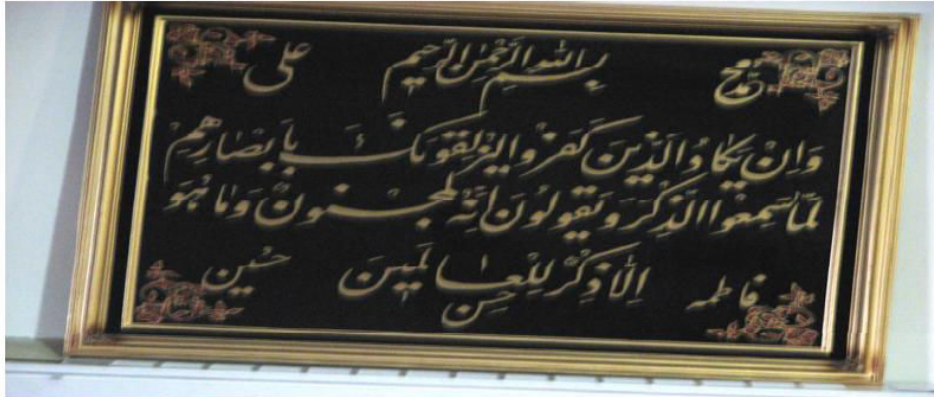 محمد بسم الله الرحمن الرحیم علی
وَاِنْ یَکادُ الَّذینَ کَفَرُوا لَیُزْلِقُونَکَ بِاَبْصارِهِمْ
لَمّا سَمِعُوا الذِّکْرَ وَیَقُولُونَ اِنَّهُ لَمَجْنُونٌ وَما هُوَ
فاطمه اِلّا ذِکْرٌ لِلْعالَمینَ حسین
حسن